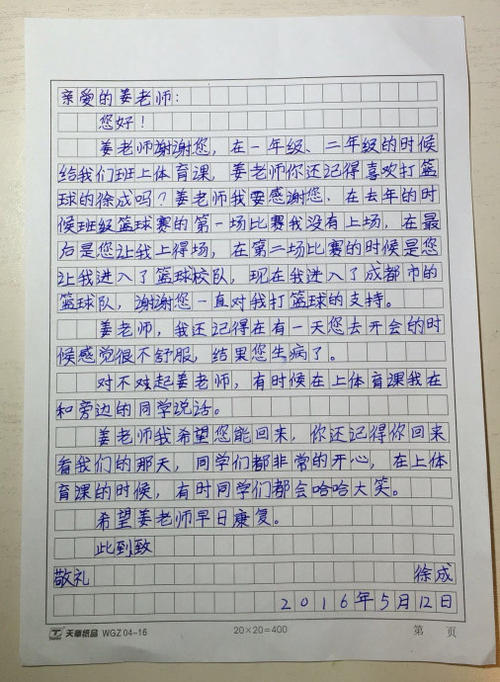 亲爱的姜老师：
您好！
姜老师谢谢您，在一年级、二年级的时候
给我们班上体育课，姜老师你还记得喜欢打篮
球的徐成吗？姜老师我要感谢您．在去年的时
候班级篮球赛的第一场比赛我没有上场，在最
后是您让我上得场，在第二场比赛的时候是您
让我进入了篮球校队，现在我进入了成都市的
篮球队，谢谢您一直对我打篮球的支持。
姜老师，我还记得在有一天您去开会的时
候感觉很不舒服，结果您生病了。
对不难起姜老师，有时候在上体育课我在
和旁边的同学说话。
姜老师我希望您能回来，你还记得你回来
看我们的那天，同学们都非常的开心，在上体
育课的时候，有时同学们都会哈哈大笑。
希望姜老师早日康复。
此到致
敬礼 徐成
2016年5月12日
天章纸品 WGZ 04-16 20×20=400 第 页